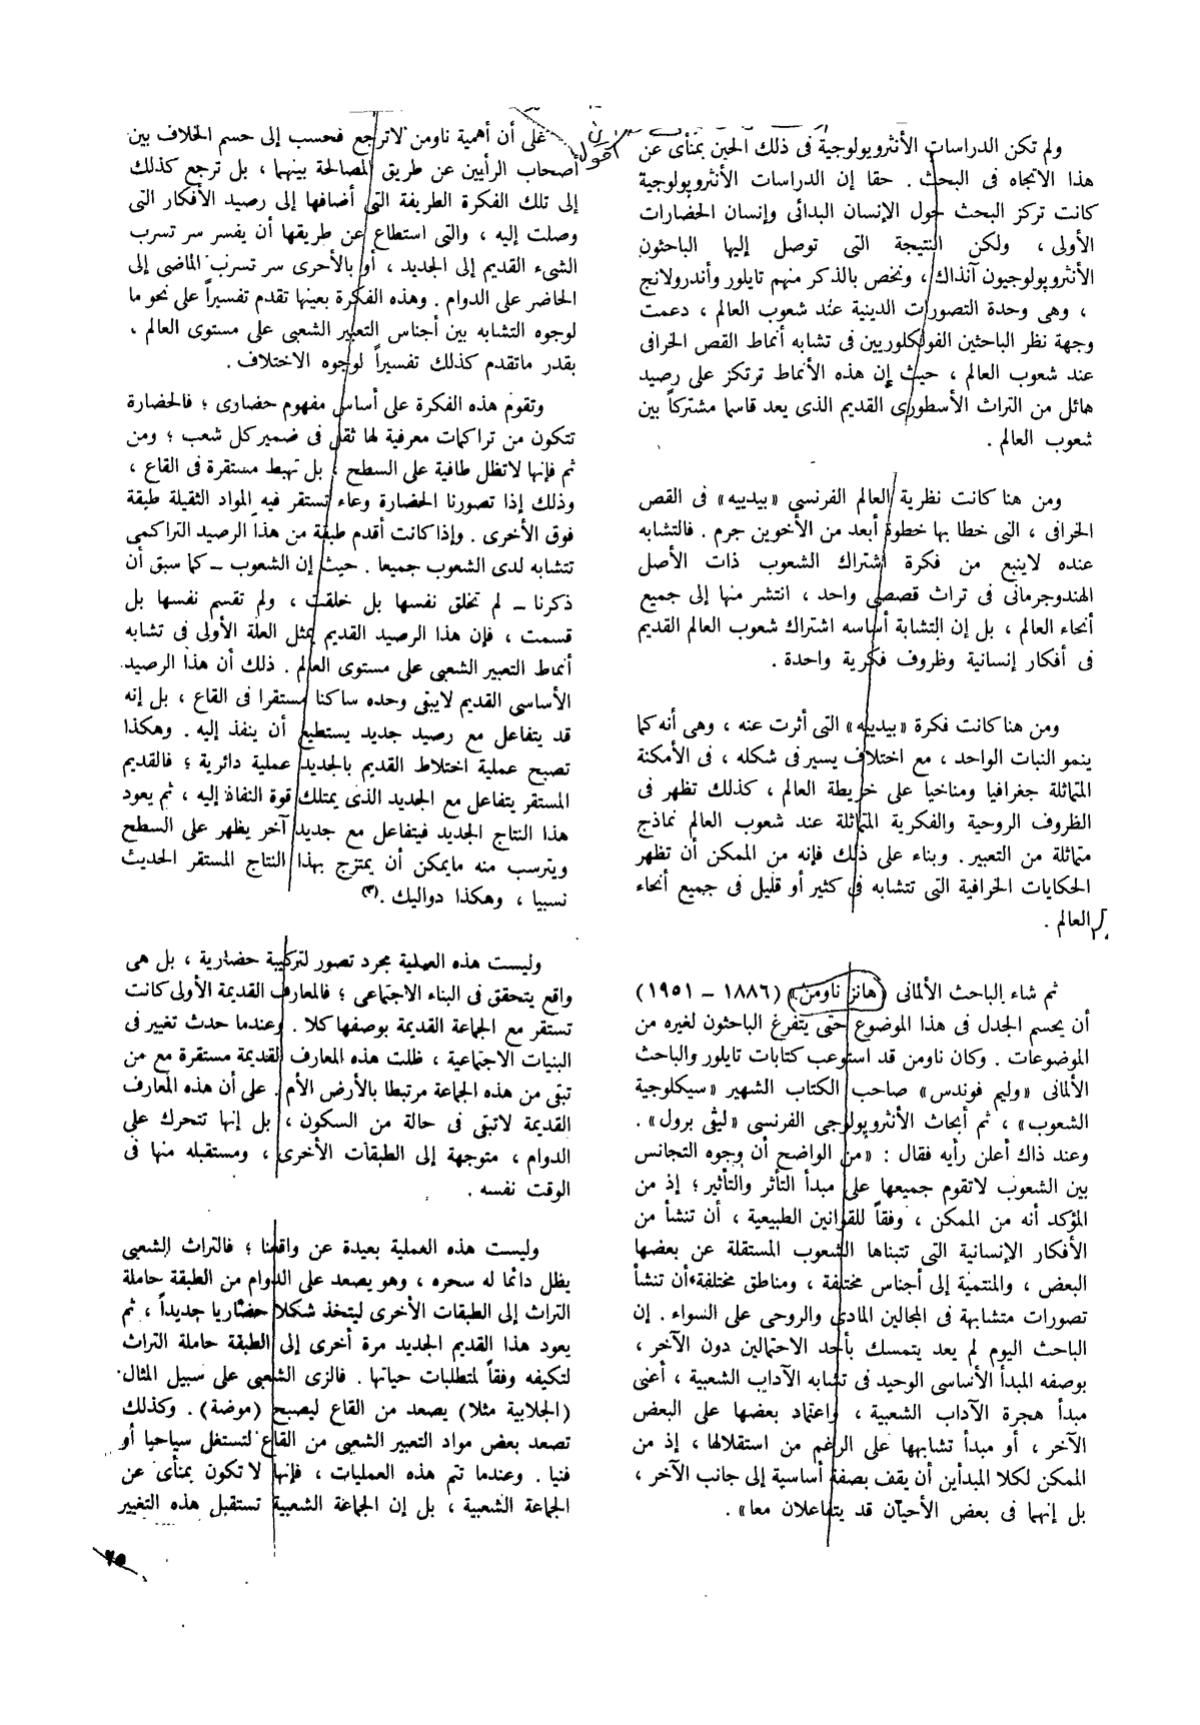 ولم تكن الدراسات الأنثروپولوجية فى ذلك الحين بمنأى عن
هذا الاتجاه فى البحث . حقا إن الدراسات الأنثروپولوجية
كانت تركز البحث حول الإنسان البدائى وإنسان الحضارات
الأولى ، ولكن النتيجة التى توصل إليها الباحثون
الأنثروپولوجيون آنذاك ، ونخص بالذكر منهم تايلور وأندرولانج
، وهى وحدة التصورات الدينية عند شعوب العالم ، دعمت
وجهة نظر الباحثين الفولكلوريين فى تشابه أنماط القص الخرافى
عند شعوب العالم ، حيث إن هذه الأنماط ترتكز على رصيد
هائل من التراث الأسطورى القديم الذى يعد قاسما مشتركاً بين
شعوب العالم .
ومن هنا كانت نظرية العالم الفرنسى «بيدييه» فى القص
الخرافى ، التى خطا بها خطوة أبعد من الأخوين جرم . فالتشابه
عنده لاينبع من فكرة اشتراك الشعوب ذات الأصل
الهندوجرمانى فى تراث قصصى واحد ، انتشر منها إلى جميع
أنحاء العالم ، بل إن التشابة أساسه اشتراك شعوب العالم القديم
فى أفكار إنسانية وظروف فكرية واحدة .
ومن هنا كانت فكرة «بيدييه» التى أثرت عنه ، وهى أنه كما
ينمو النبات الواحد ، مع اختلاف يسير فى شكله ، فى الأمكنة
المتماثلة جغرافيا ومناخيا على خريطة العالم ، كذلك تظهر فى
الظروف الروحية والفكرية المتماثلة عند شعوب العالم نماذج
متماثلة من التعبير . وبناء على ذلك فإنه من الممكن أن تظهر
الحكايات الخرافية التى تتشابه فى كثير أو قليل فى جميع أنحاء
العالم .
ثم شاء الباحث الألمانى (هانز ناومن) (١٨٨٦ – ١٩٥١)
أن يحسم الجدل فى هذا الموضوع حتى يتفرغ الباحثون لغيره من
الموضوعات . وكان ناومن قد استوعب كتابات تايلور والباحث
الألمانى «وليم فوندس» صاحب الكتاب الشهير «سيكلوجية
الشعوب» ، ثم أبحاث الأنثروپولوجى الفرنسى «ليڤى برول» .
وعند ذاك أعلن رأيه فقال : «من الواضح أن وجوه التجانس
بين الشعوب لاتقوم جميعها على مبدأ التأثر والتأثير ؛ إذ من
المؤكد أنه من الممكن ، وفقاً للقوانين الطبيعية ، أن تنشأ من
الأفكار الإنسانية التى تتبناها الشعوب المستقلة عن بعضها
البعض ، والمنتمية إلى أجناس مختلفة ، ومناطق مختلفة، أن تنشأ
تصورات متشابهة فى المجالين المادى والروحى على السواء . إن
الباحث اليوم لم يعد يتمسك بأحد الاحتمالين دون الآخر ،
بوصفه المبدأ الأساسى الوحيد فى تشابه الآداب الشعبية ، أعنى
مبدأ هجرة الآداب الشعبية ، واعتماد بعضها على البعض
الآخر ، أو مبدأ تشابهها على الرغم من استقلالها ، إذ من
الممكن لكلا المبدأين أن يقف بصفة أساسية إلى جانب الآخر ،
بل إنهما فى بعض الأحيان قد يتفاعلان معا» .
أقول
على أن أهمية ناومن لاترجع فحسب إلى حسم الخلاف بين
أصحاب الرأيين عن طريق المصالحة بينهما ، بل ترجع كذلك
إلى تلك الفكرة الطريفة التى أضافها إلى رصيد الأفكار التى
وصلت إليه ، والتى استطاع عن طريقها أن يفسر سر تسرب
الشىء القديم إلى الجديد ، أو بالأحرى سر تسرب الماضى إلى
الحاضر على الدوام . وهذه الفكرة بعينها تقدم تفسيراً على نحو ما
لوجوه التشابه بين أجناس التعبير الشعبى على مستوى العالم ،
بقدر ماتقدم كذلك تفسيراً لوجوه الاختلاف .
وتقوم هذه الفكرة على أساس مفهوم حضارى ؛ فالحضارة
تتكون من تراكمات معرفية لها ثقل فى ضمير كل شعب ؛ ومن
ثم فإنها لاتظل طافية على السطح ، بل تهبط مستقرة فى القاع ،
وذلك إذا تصورنا الحضارة وعاء تستقر فيه المواد الثقيلة طبقة
فوق الأخرى . وإذا كانت أقدم طبقة من هذا الرصيد التراكمى
تتشابه لدى الشعوب جميعا . حيث إن الشعوب – كما سبق أن
ذكرنا – لم تخلق نفسها بل خلقت ، ولم تقسم نفسها بل
قسمت ، فإن هذا الرصيد القديم يمثل العلة الأولى فى تشابه
أنماط التعبير الشعبى على مستوى العالم . ذلك أن هذا الرصيد
الأساسى القديم لايبقى وحده ساكنا مستقرا فى القاع ، بل إنه
قد يتفاعل مع رصيد جديد يستطيع أن ينفذ إليه . وهكذا
تصبح عملية اختلاط القديم بالجديد عملية دائرية ؛ فالقديم
المستقر يتفاعل مع الجديد الذى يمتلك قوة النفاذ إليه ، ثم يعود
هذا النتاج الجديد فيتفاعل مع جديد آخر يظهر على السطح
ويترسب منه مايمكن أن يمتزج بهذا النتاج المستقر الحديث
نسبيا ، وهكذا دواليك .(٣)
وليست هذه العملية مجرد تصور لتركيبة حضارية ، بل هى
واقع يتحقق فى البناء الاجتماعى ؛ فالمعارف القديمة الأولى كانت
تستقر مع الجماعة القديمة بوصفها كلا . وعندما حدث تغيير فى
البنيات الاجتماعية ، ظلت هذه المعارف القديمة مستقرة مع من
تبقى من هذه الجماعة مرتبطا بالأرض الأم . على أن هذه المعارف
القديمة لاتبقى فى حالة من السكون ، بل إنها تتحرك على
الدوام ، متوجهة إلى الطبقات الأخرى ، ومستقبله منها فى
الوقت نفسه .
وليست هذه العملية بعيدة عن واقعنا ؛ فالتراث الشعبى
يظل دائما له سحره ، وهو يصعد على الدوام من الطبقة حاملة
التراث إلى الطبقات الأخرى ليتخذ شكلا حضاريا جديداً ، ثم
يعود هذا القديم الجديد مرة أخرى إلى الطبقة حاملة التراث
لتكيفه وفقاً لمتطلبات حياتها . فالزى الشعبى على سبيل المثال
(الجلابية مثلا) يصعد من القاع ليصبح (موضة) . وكذلك
تصعد بعض مواد التعبير الشعبى من القاع لتستغل سياحيا أو
فنيا . وعندما تتم هذه العمليات ، فإنها لا تكون بمنأى عن
الجماعة الشعبية ، بل إن الجماعة الشعبية تستقبل هذه التغيير
٢٥